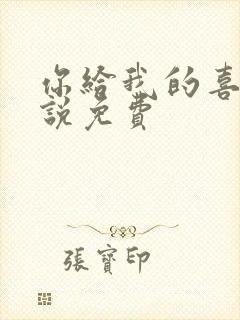 你給我的喜
說免費
張寶印